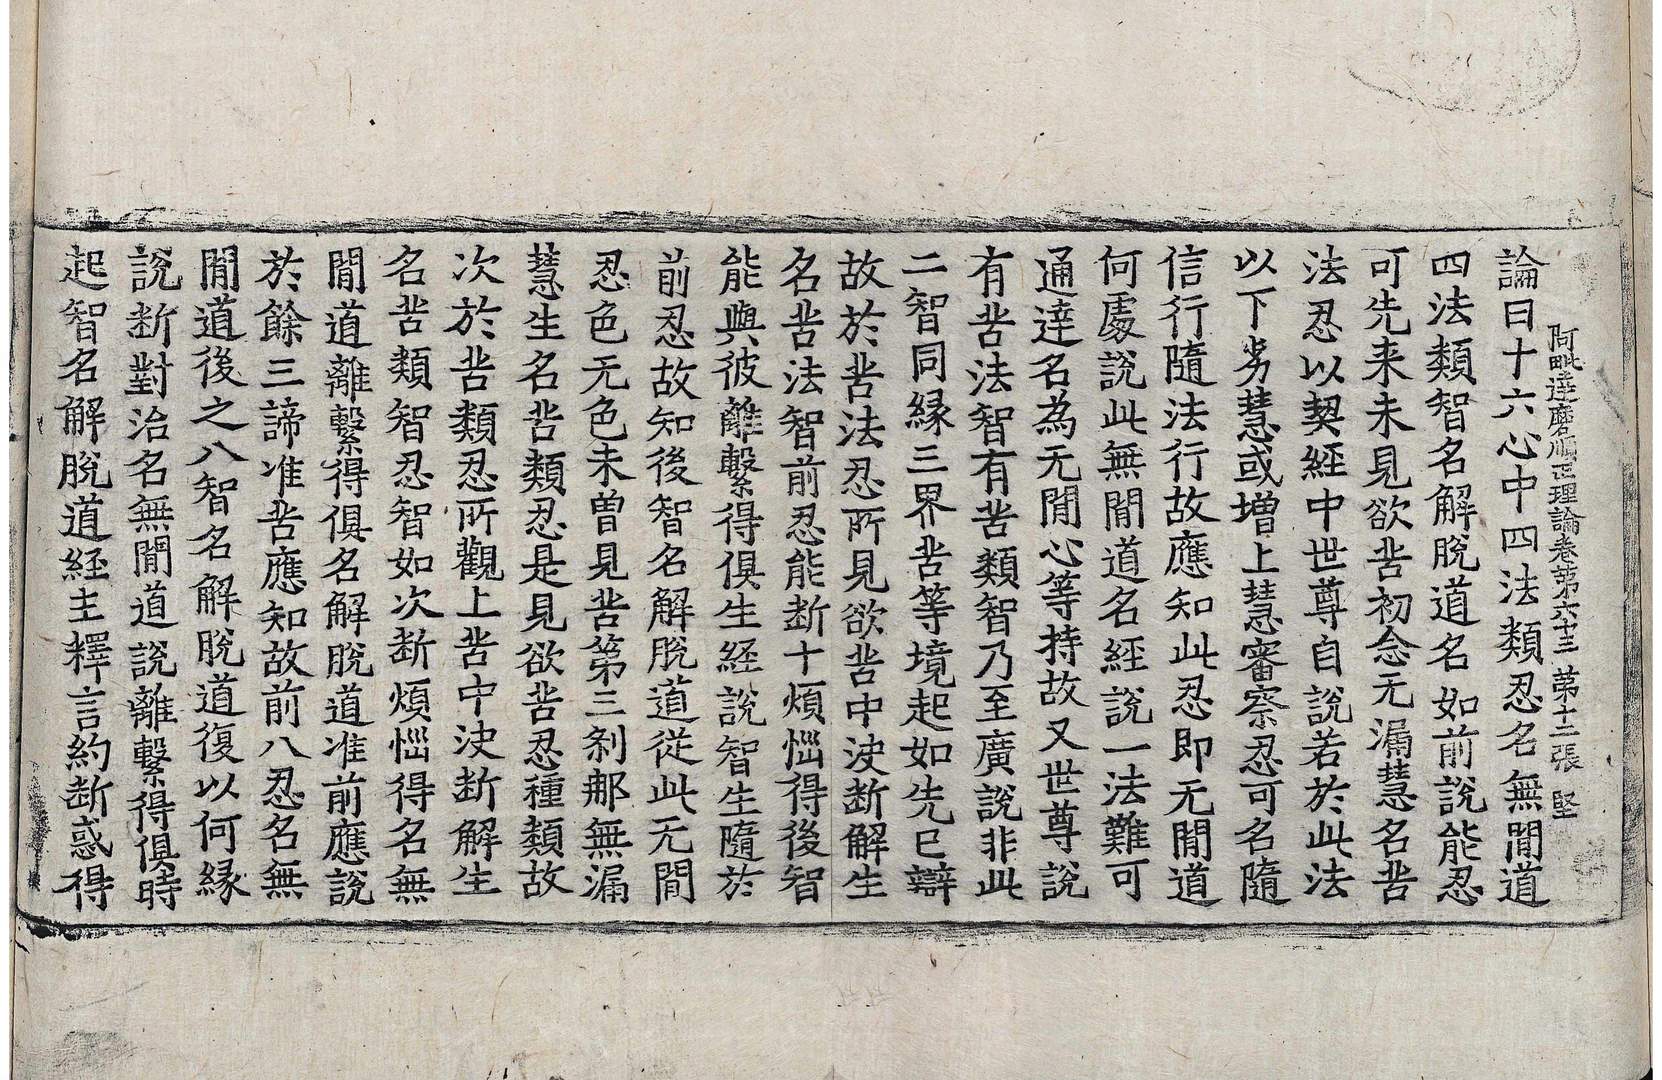 阿毗達磨順正理論卷第六十三 第十二張 堅
論曰十六心中四法類忍名無閒道
四法類智名解脫道名如前說能忍
可先来未見欲苦初念无漏慧名苦
法忍以契經中世尊自說若於此法
以下劣慧或增上慧審察忍可名隨
信行隨法行故應知此忍即无閒道
何處說此無閒道名經說一法難可
通達名為无閒心等持故又世尊說
有苦法智有苦類智乃至廣說非此
二智同緣三界苦等境起如先已辯
故於苦法忍所見欲苦中決断解生
名苦法智前忍能断十煩惱得後智
能與彼離繫得俱生經說智生隨於
前忍故知後智名解脫道從此无閒
忍色无色未曽見苦第三刹那無漏
慧生名苦類忍是見欲苦忍種類故
次於苦類忍所觀上苦中決断解生
名苦類智忍智如次断煩惱得名無
閒道離繫得俱名解脫道准前應說
於餘三諦准苦應知故前八忍名無
閒道後之八智名解脫道復以何緣
說断對治名無閒道說離繫得俱時
起智名解脫道經主釋言約断惑得